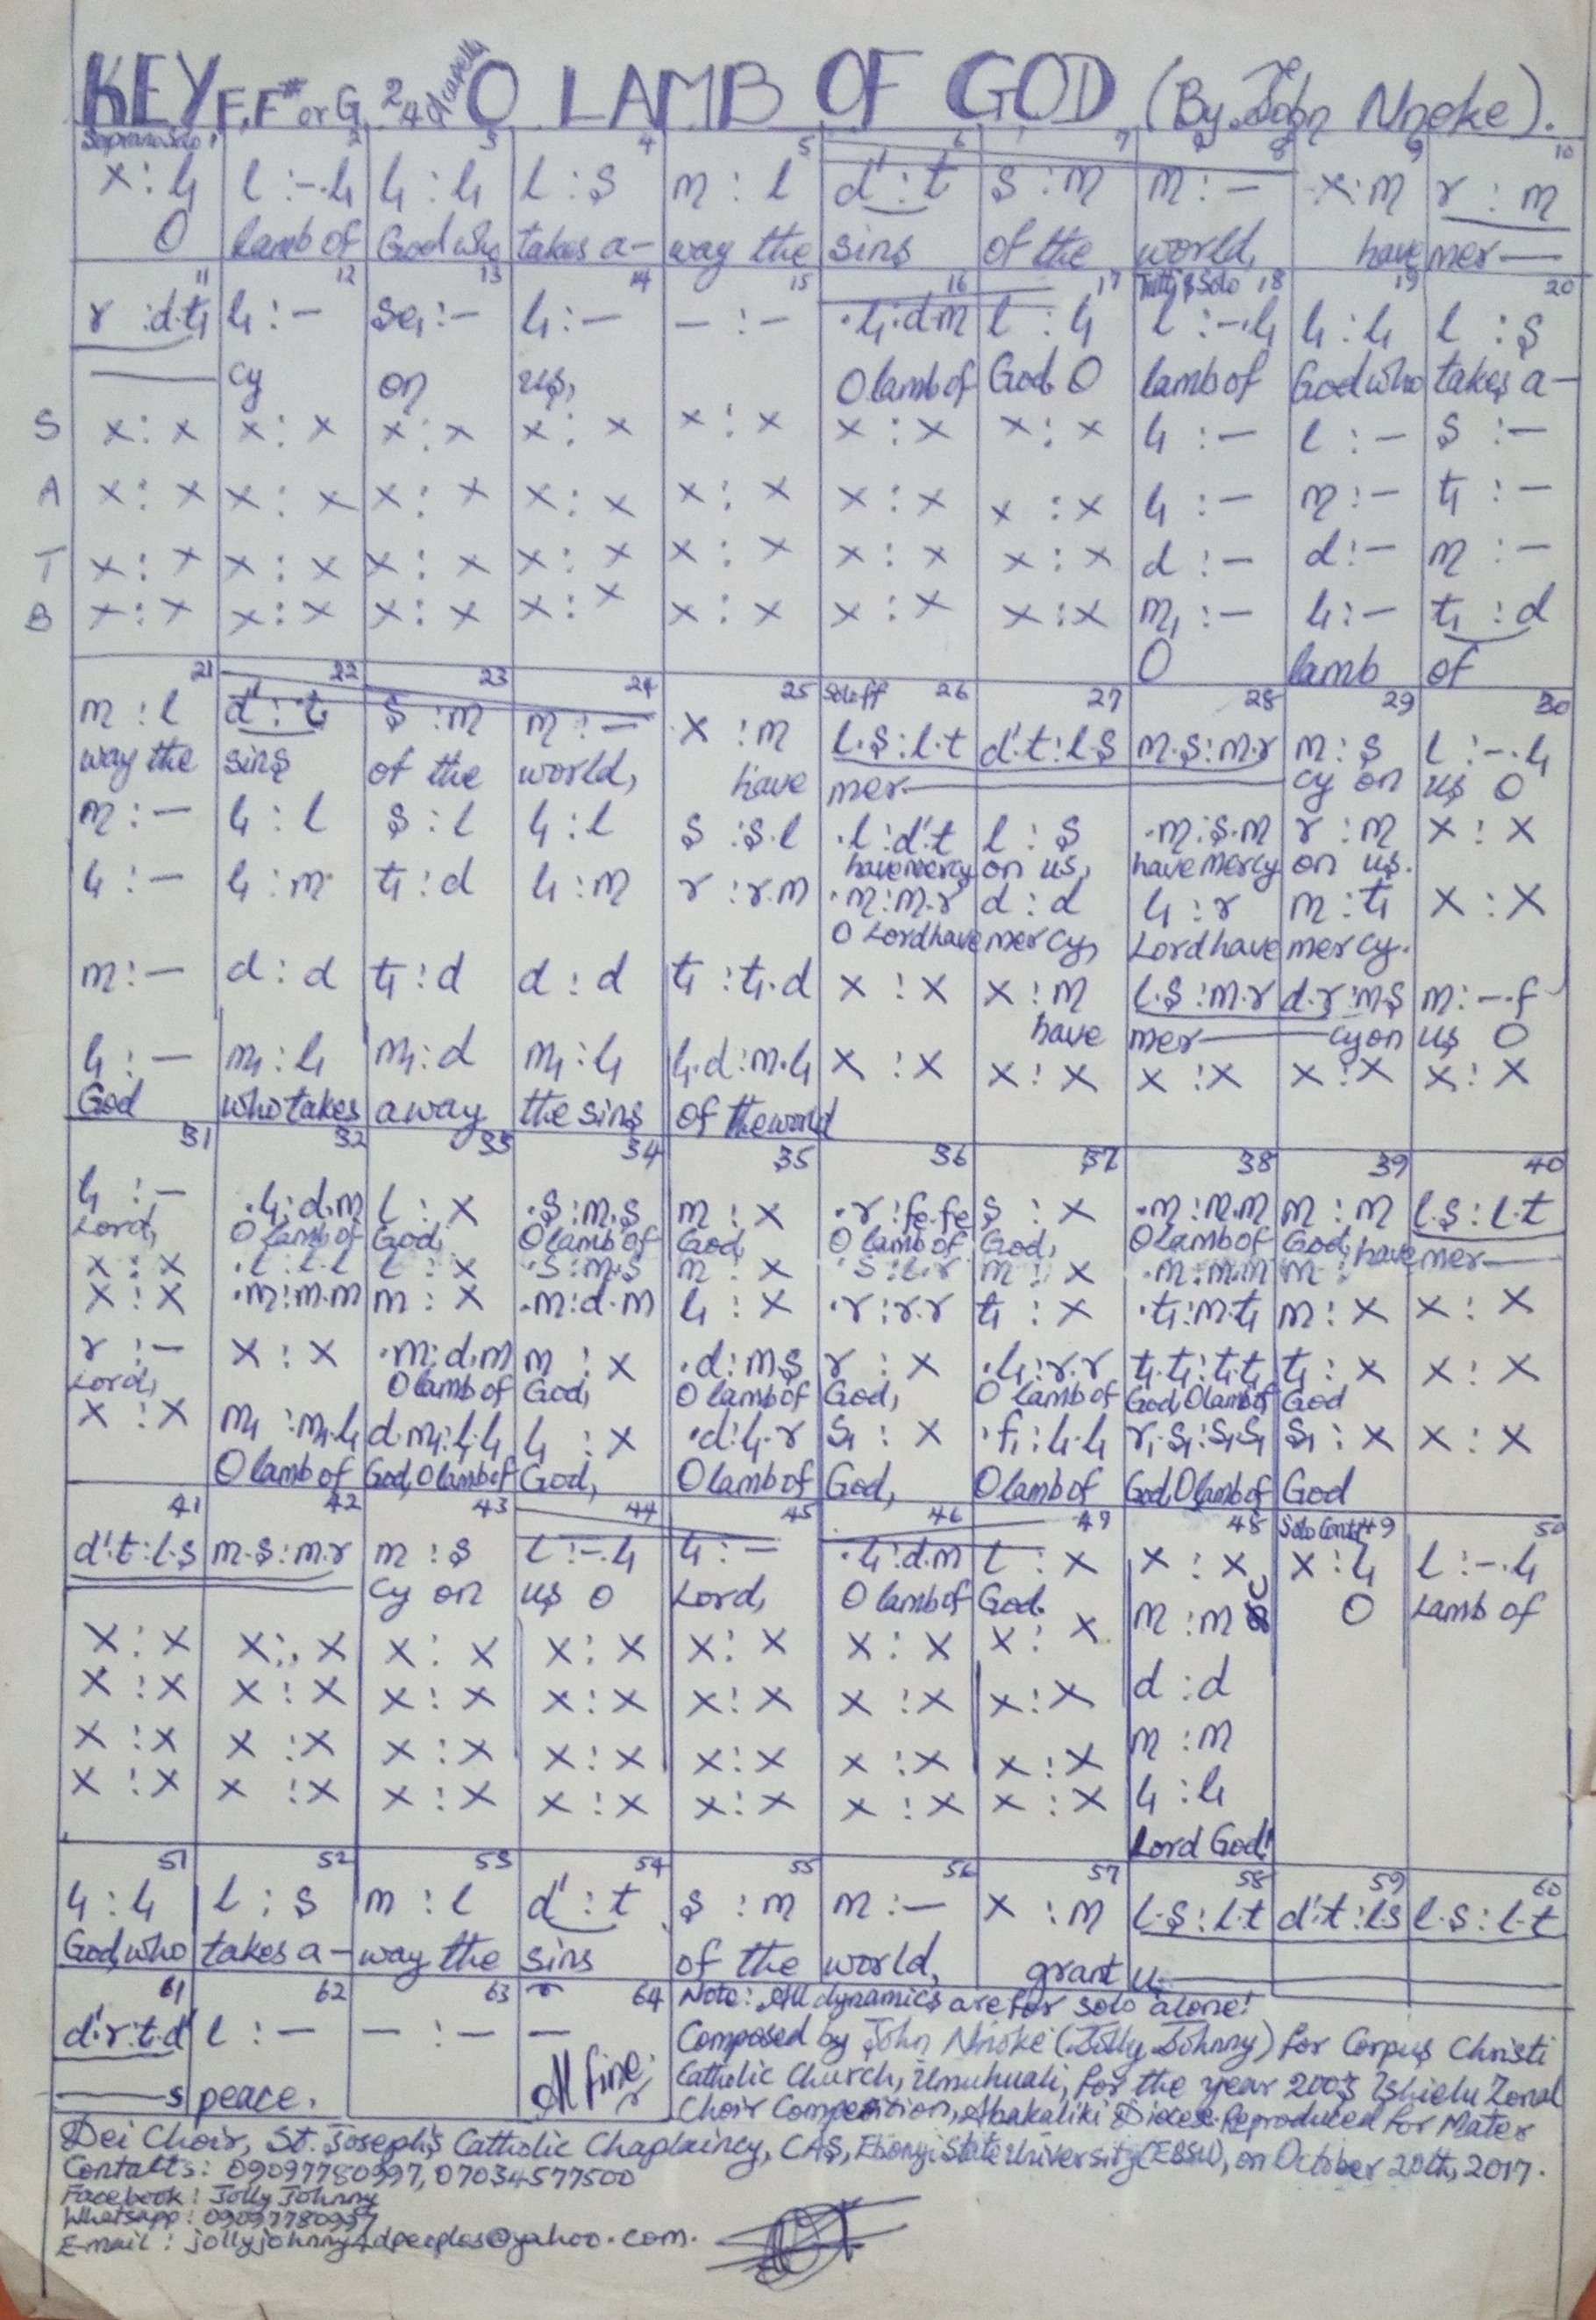 KEY F, F# or G. 2/4 O LAMB OF GOD (By. John Nnoke).
Soprano Solo 1 2 3 4 5 6 7 8 9 10
x : l₁ | l : -. l₁ | l₁ : l₁ | l : s | m : l | d' : t | s : m | m : - | x : m | r : m
O lamb of God who takes a- way the sins of the world, have mer—
11 12 13 14 15 16 17 Tutti & Solo 18 19 20
r : d.t₁ | l₁ : - | se₁ : - | l₁ : - | - : - | .l₁ : d.m | l : l₁ | l : -.l₁ | l₁ : l₁ | l : s
— cy on us, O lamb of God. O lamb of God who takes a-
S x : x | x : x | x : x | x : x | x : x | x : x | x : x | l₁ : - | l : - | s : -
A x : x | x : x | x : x | x : x | x : x | x : x | x : x | l₁ : - | m : - | t₁ : -
T x : x | x : x | x : x | x : x | x : x | x : x | x : x | d : - | d : - | m : -
B x : x | x : x | x : x | x : x | x : x | x : x | x : x | m₁ : - | l₁ : - | t₁ : d
O lamb of
21 22 23 24 25 Solo ff 26 27 28 29 30
m : l | d' : t | s : m | m : - | x : m | l.s : l.t | d'.t : l.s | m.s : m.r | m : s | l : -.l₁
way the sins of the world, have mer— cy on us O
m : - | l₁ : l | s : l | l₁ : l | s : s.l | .l : d'.t | l : s | .m : s.m | r : m | x : x
have mercy on us, have mercy on us.
l₁ : - | l₁ : m | t₁ : d | l₁ : m | r : r.m | .m : m.r | d : d | l₁ : r | m : t₁ | x : x
O Lord have mercy, Lord have mercy.
m : - | d : d | t₁ : d | d : d | t₁ : t₁.d | x : x | x : m | l.s : m.r | d.r : m.s | m : -.f
have mer— cy on us O
l₁ : - | m₁ : l₁ | m₁ : d | m₁ : l₁ | l₁.d : m.l₁ | x : x | x : x | x : x | x : x | x : x
God who takes away the sins of the world
31 32 33 34 35 36 37 38 39 40
l₁ : - | .l₁ : d.m | l : x | .s : m.s | m : x | .r : fe.fe | s : x | .m : m.m | m : m | l.s : l.t
Lord, O lamb of God, O lamb of God, O lamb of God, O lamb of God, have mer—
x : x | .l : l.l | l : x | .s : m.s | m : x | .s : l.r | m : x | .m : m.m | m :
x : x | .m : m.m | m : x | .m : d.m | l₁ : x | .r : r.r | t₁ : x | .t₁ : m.t₁ | m : x | x : x
r : - | x : x | .m : d.m | m : x | .d : m.s | r : x | .l₁ : r.r | t₁.t₁ : t₁.t₁ | t₁ : x | x : x
Lord, O lamb of God, O lamb of God, O lamb of God, O lamb of God
x : x | m₁ : m₁.l₁ | d.m₁ : l₁.l₁ | l₁ : x | .d : l₁.r | s₁ : x | .f₁ : l₁.l₁ | r₁.s₁ : s₁.s₁ | s₁ : x | x : x
O lamb of God, O lamb of God, O lamb of God, O lamb of God, O lamb of God
41 42 43 44 45 46 47 48 Solo Cont. 49 50
d'.t : l.s | m.s : m.r | m : s | l : -.l₁ | l₁ : - | .l₁ : d.m | l : x | x : x | x : l₁ | l : -.l₁
cy on us O Lord, O lamb of God. O Lamb of
x : x | x : x | x : x | x : x | x : x | x : x | x : x | m : m
x : x | x : x | x : x | x : x | x : x | x : x | x : x | d : d
x : x | x : x | x : x | x : x | x : x | x : x | x : x | m : m
x : x | x : x | x : x | x : x | x : x | x : x | x : x | l₁ : l₁
Lord God!
51 52 53 54 55 56 57 58 59 60
l₁ : l₁ | l : s | m : l | d' : t | s : m | m : - | x : m | l.s : l.t | d'.t : l.s | l.s : l.t
God, who takes a- way the sins of the world, grant u—
61 62 63 64
d'.r : t.d' | l : - | - : - | -
—s peace.
Note: All dynamics are for solo alone!
Composed by John Nnoke (Jolly Johnny) for Corpus Christi
Catholic Church, Umuhuali, for the year 2003 Ishielu Zonal
Choir Competition, Abakaliki Diocese. Reproduced for Mater
Dei Choir, St. Joseph's Catholic Chaplaincy, CAS, Ebonyi State University (EBSU), on October 20th, 2017.
Contacts: 09097780997, 07034577500
Facebook: Jolly Johnny
Whatsapp: 09097780997
E-mail: jollyjohnny4dpeoples@yahoo.com.